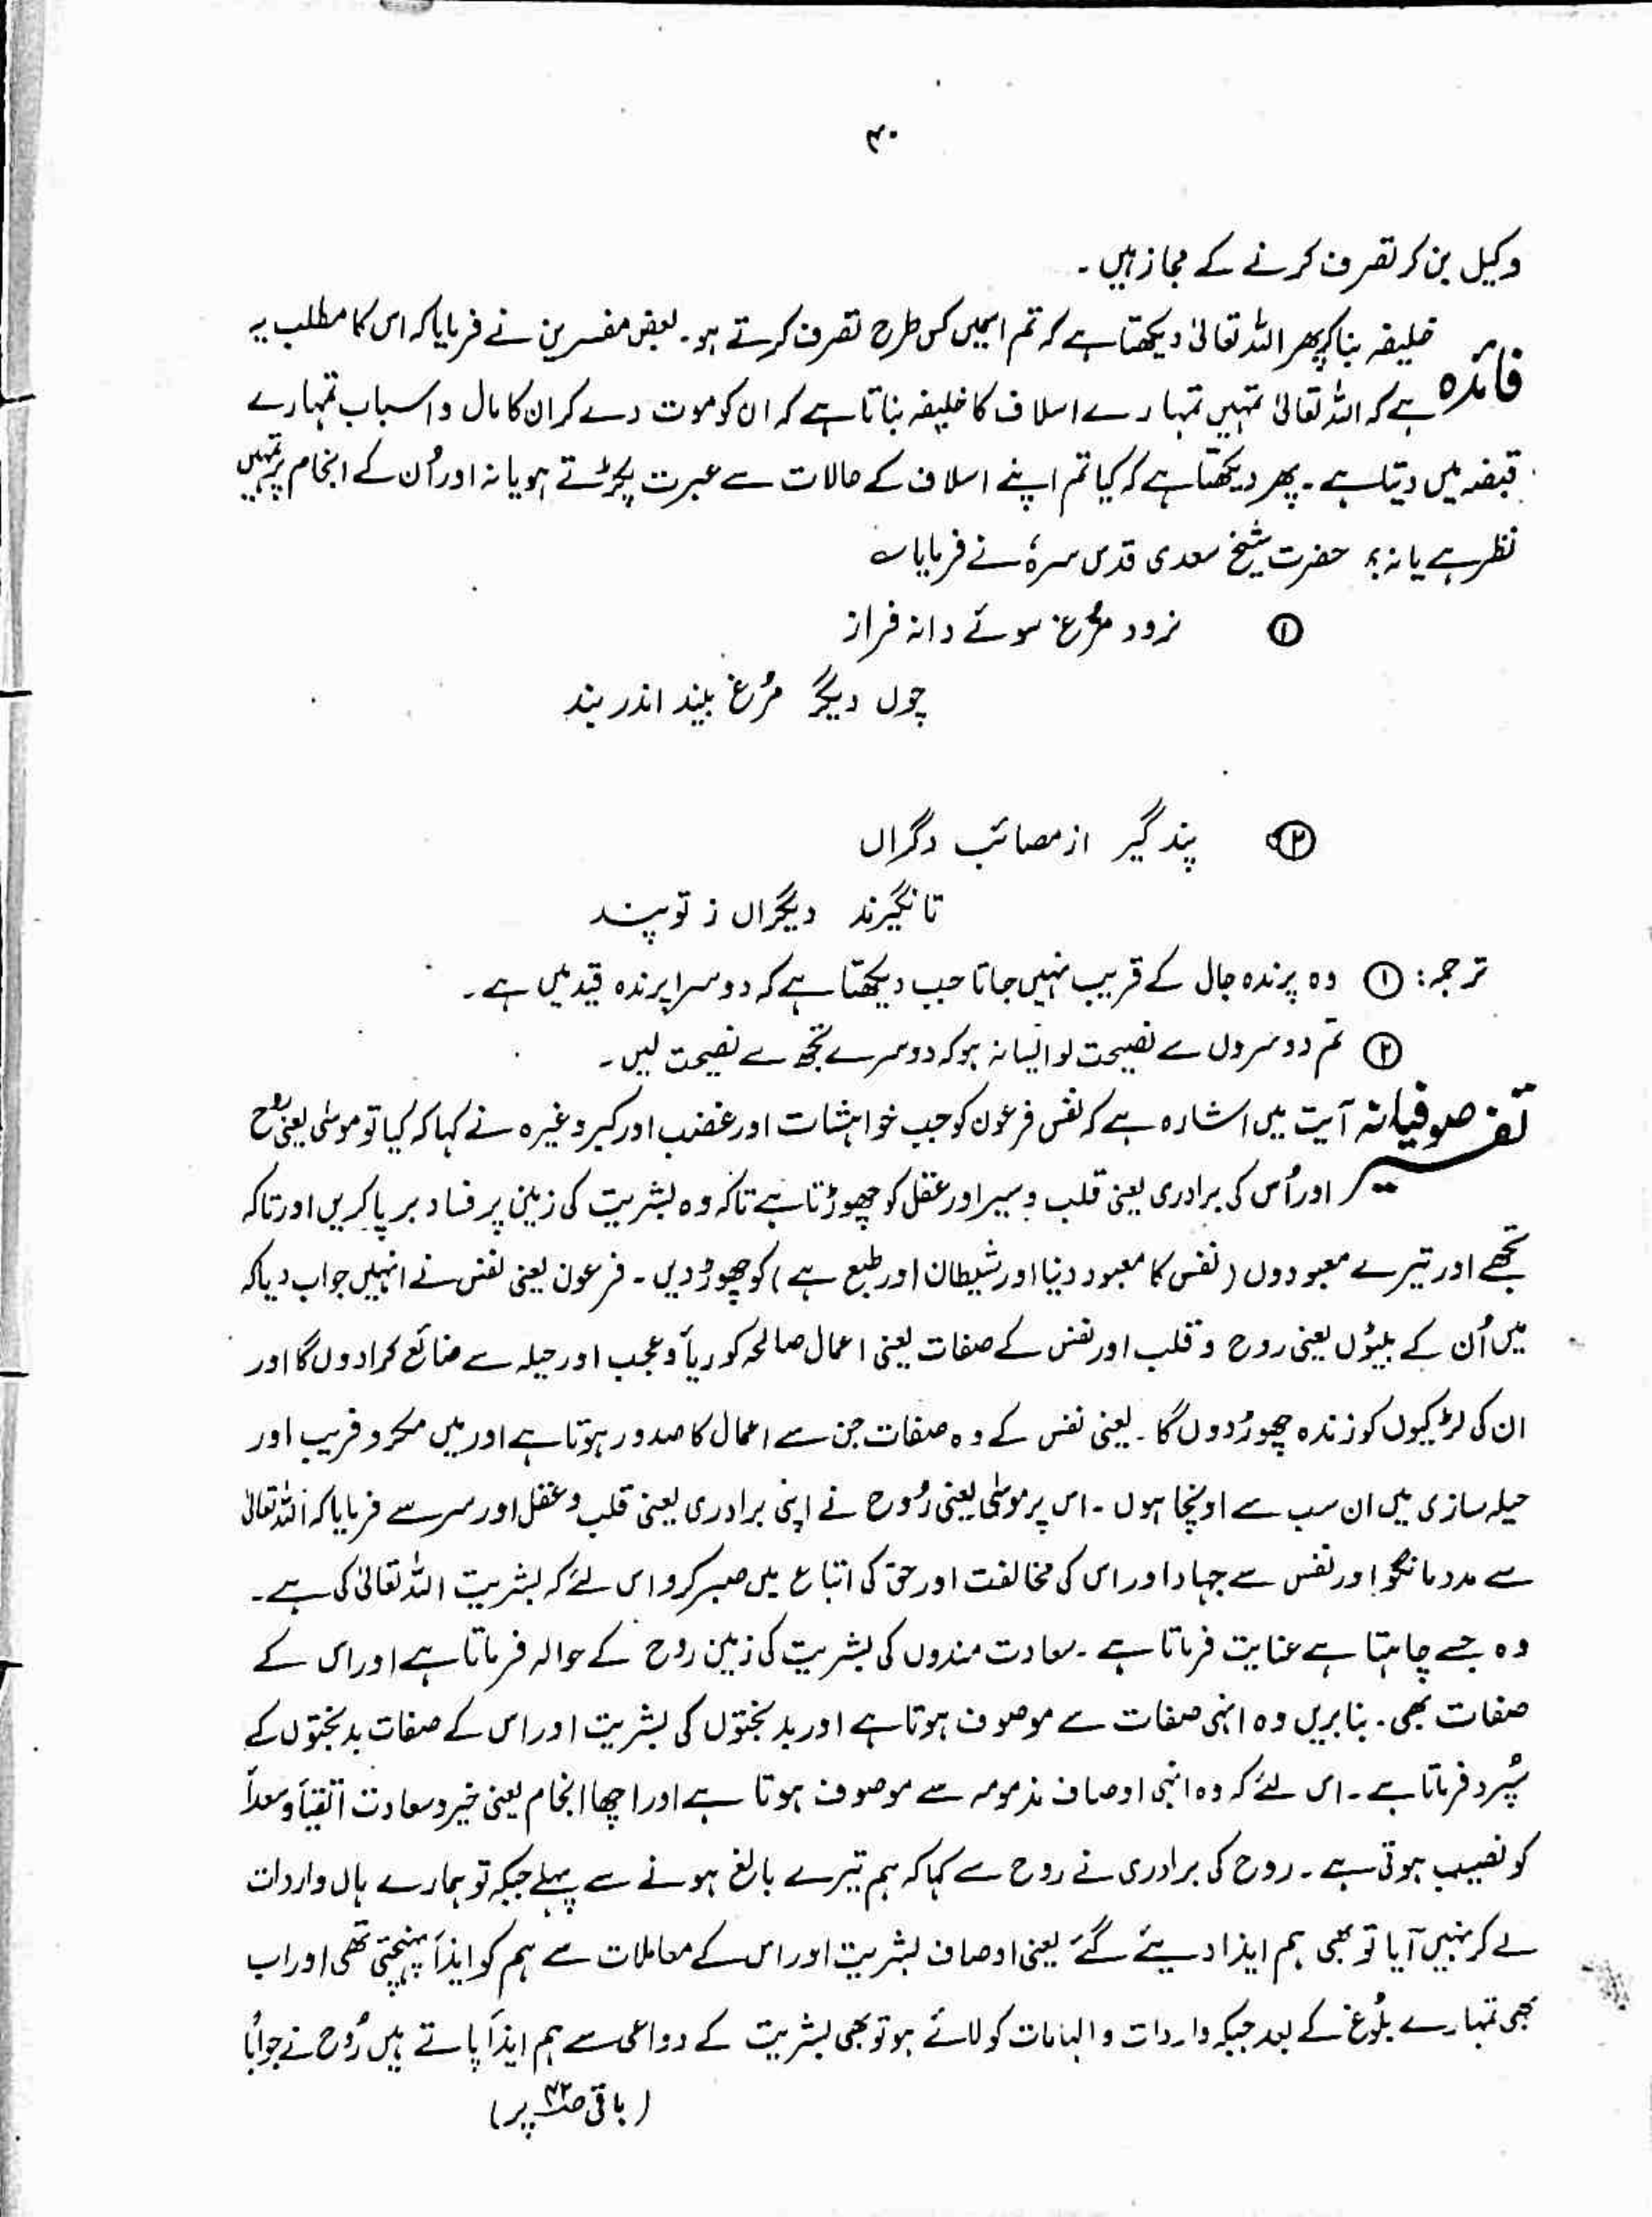 ۴۰
وکیل بن کر تصرف کرنے کے مجاز ہیں ۔
فائدہ خلیفہ بنا کر پھر اللہ تعالیٰ دیکھتا ہے کہ تم اسمیں کس طرح تصرف کرتے ہو ۔ بعض مفسرین نے فرمایا کہ اس کا مطلب یہ
ہے کہ اللہ تعالیٰ تمہیں تمہارے اسلاف کا خلیفہ بناتا ہے کہ ان کو موت دے کر ان کا مال و اسباب تمہارے
قبضہ میں دیتا ہے ۔ پھر دیکھتا ہے کہ کیا تم اپنے اسلاف کے حالات سے عبرت پکڑتے ہو یا نہ اور اُن کے انجام پر تمہیں
نظر ہے یا نہ ؟ حضرت شیخ سعدی قدس سرہٗ نے فرمایا ؎
① نرود مُرغ سوئے دانہ فراز
چوں دیگر مُرغ بیند اندر بند
② پند گیر از مصائب دگراں
تا نگیرند دیگراں ز تو پند
ترجمہ : ① وہ پرندہ جال کے قریب نہیں جاتا جب دیکھتا ہے کہ دوسرا پرندہ قید میں ہے ۔
② تم دوسروں سے نصیحت لو ایسا نہ ہو کہ دوسرے تجھ سے نصیحت لیں ۔
تفسیر صوفیانہ آیت میں اشارہ ہے کہ نفس فرعون کو جب خواہشات اور غضب اور کبر وغیرہ نے کہا کہ کیا تو موسیٰ یعنی روح
اور اُس کی برادری یعنی قلب و سِر اور عقل کو چھوڑتا ہے تاکہ وہ بشریت کی زمین پر فساد برپا کریں اور تاکہ
تجھے اور تیرے معبودوں ( نفس کا معبود دنیا اور شیطان اور طبع ہے ) کو چھوڑ دیں ۔ فرعون یعنی نفس نے انہیں جواب دیا کہ
میں اُن کے بیٹوں یعنی روح و قلب اور نفس کے صفات یعنی اعمال صالحہ کو ریأ و عجب اور حیلہ سے ضائع کرا دوں گا اور
ان کی لڑکیوں کو زندہ چھوڑ دوں گا ۔ یعنی نفس کے وہ صفات جن سے اعمال کا صدور ہوتا ہے اور میں مکر و فریب اور
حیلہ سازی میں ان سب سے اونچا ہوں ۔ اس پر موسیٰ یعنی رُوح نے اپنی برادری یعنی قلب و عقل اور سر سے فرمایا کہ اللہ تعالیٰ
سے مدد مانگو اور نفس سے جہاد اور اس کی مخالفت اور حق کی اتباع میں صبر کرو اس لئے کہ بشریت اللہ تعالیٰ کی ہے ۔
وہ جسے چاہتا ہے عنایت فرماتا ہے ۔ سعادت مندوں کی بشریت کی زمین روح کے حوالہ فرماتا ہے اور اس کے
صفات بھی ۔ بنا بریں وہ انہی صفات سے موصوف ہوتا ہے اور بدبختوں کی بشریت اور اس کے صفات بدبختوں کے
سُپرد فرماتا ہے ۔ اس لئے کہ وہ انہی اوصاف مذمومہ سے موصوف ہوتا ہے اور اچھا انجام یعنی خیر و سعادت اتقیأ و سعدأ
کو نصیب ہوتی ہے ۔ روح کی برادری نے روح سے کہا کہ ہم تیرے بالغ ہونے سے پہلے جبکہ تو ہمارے ہاں واردات
لے کر نہیں آیا تو بھی ہم ایذا دیئے گئے یعنی اوصاف بشریت اور اس کے معاملات سے ہم کو ایذأ پہنچتی تھی اور اب
بھی تمہارے بلُوغ کے بعد جبکہ واردات و الہامات کو لائے ہو تو بھی بشریت کے دواعی سے ہم ایذأ پاتے ہیں رُوح نے جواباً
( باقی صـ۴۲ پر )